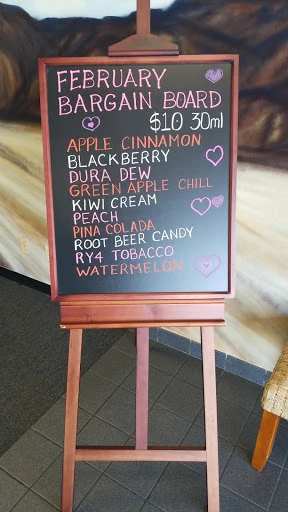 FEBRUARY
BARGAIN BOARD
$10 30ml
APPLE CINNAMON
BLACKBERRY
DURA DEW
GREEN APPLE CHILL
KIWI CREAM
PEACH
PINA COLADA
ROOT BEER CANDY
RY4 TOBACCO
WATERMELON